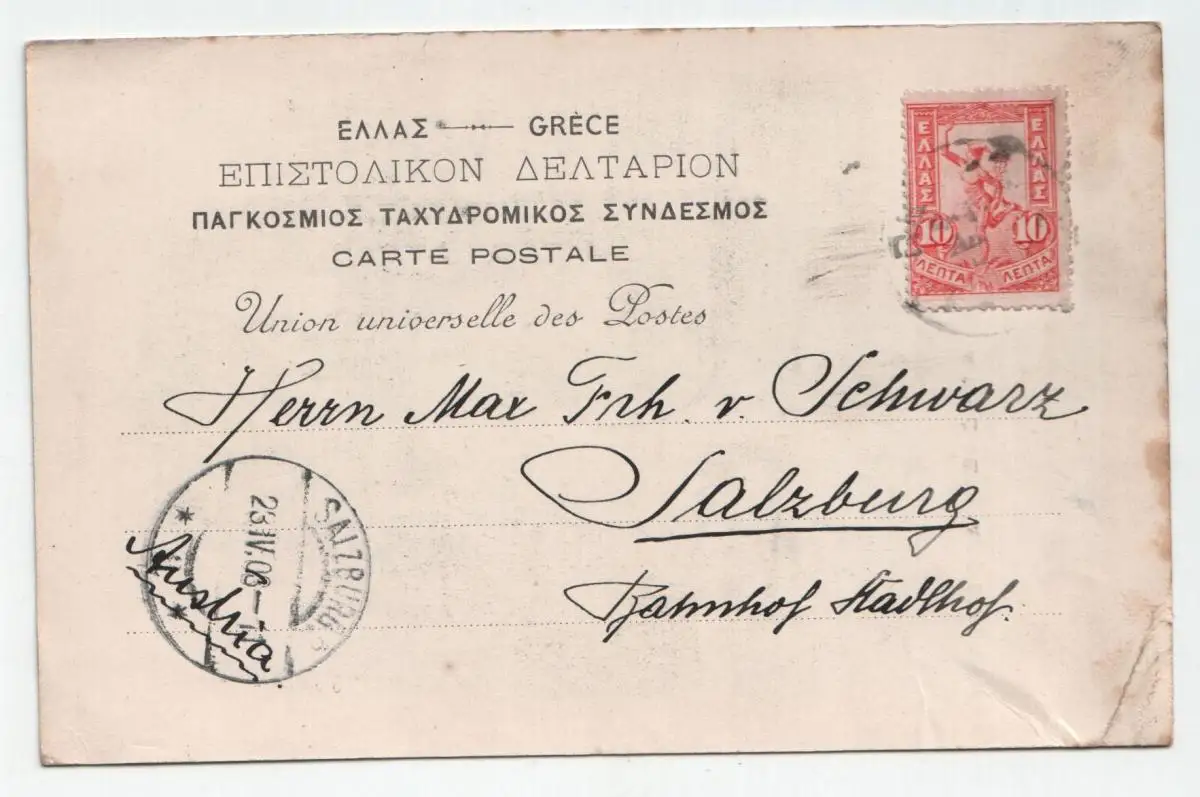 ΕΛΛΑΣ GRÈCE
ΕΠΙΣΤΟΛΙΚΟΝ ΔΕΛΤΑΡΙΟΝ
ΠΑΓΚΟΣΜΙΟΣ ΤΑΧΥΔΡΟΜΙΚΟΣ ΣΥΝΔΕΣΜΟΣ
CARTE POSTALE
Union universelle des Postes
ΕΛΛΑΣ ΕΛΛΑΣ
10 10
ΛΕΠΤΑ ΛΕΠΤΑ
Herrn Max Frh. v. Schwarz
Salzburg
Bahnhof Stadlhof.
SALZBURG
23.IV.06
Austria